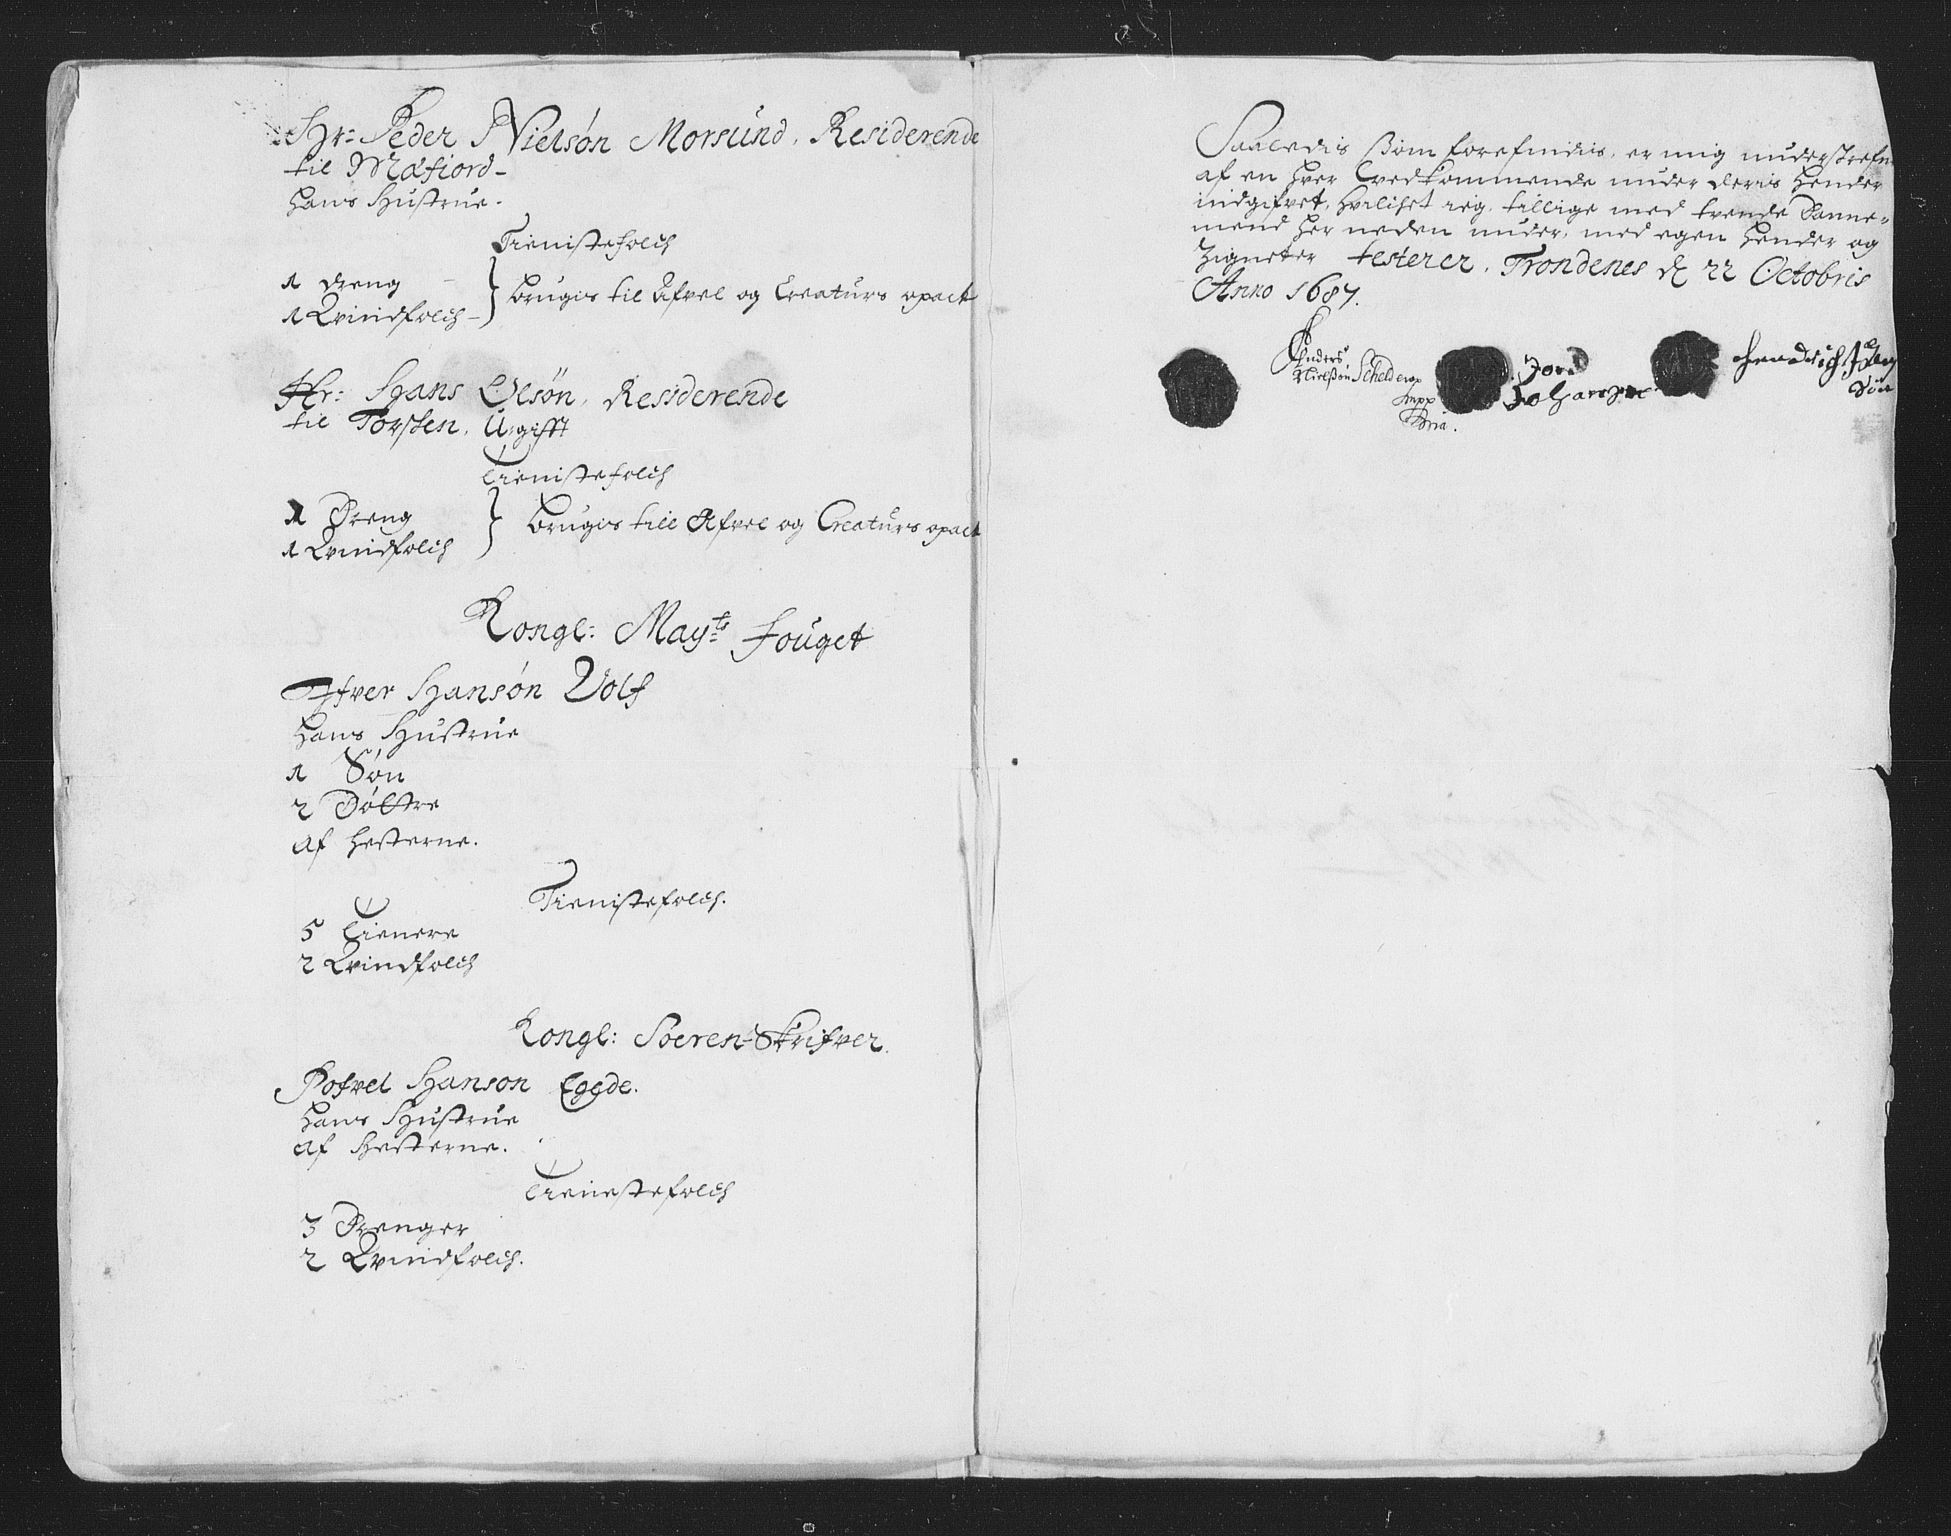 Hr: Peder Nielsøn Morsund, Residerende
til Mæfiord
hans Hustrue.
Tienistefolch
1 dreng
1 Qvindfolch
brugis til Afvel og Creaturs opact
Hr: Hans Olsøn, Residerende
til Torsken, Ugifft
Tienistefolch
1 Dreng
1 Qvindfolch
brugis till Afvel og Creaturs opact
Kongl: Mayts fouget
Ifver Hansøn Volf
hans Hustrue
1 Søn
2 Døttre
af hesterne.
Tienistefolch.
5 Tienere
2 Qvindfolch
Kongl: Soeren-Skrifver
Pofvel Hanson Egede.
hans Hustrue
af Hesterne.
Tienestefolch
3 Drenger
2 Qvindfolch.
Saaledis som forefindis, er mig understrefn
af en hver Vedkommende under deris hender
indgifvet, hvilchet ieg, tillige med tvende Danne-
mend her neden under, med egen hender og
Zigneter testerer, Trondenes d 22 Octobris
Anno 1687.
Anders
Nielsøn Schelderup
mpp
ria.
Jon
Johansen
hendrich
Søn